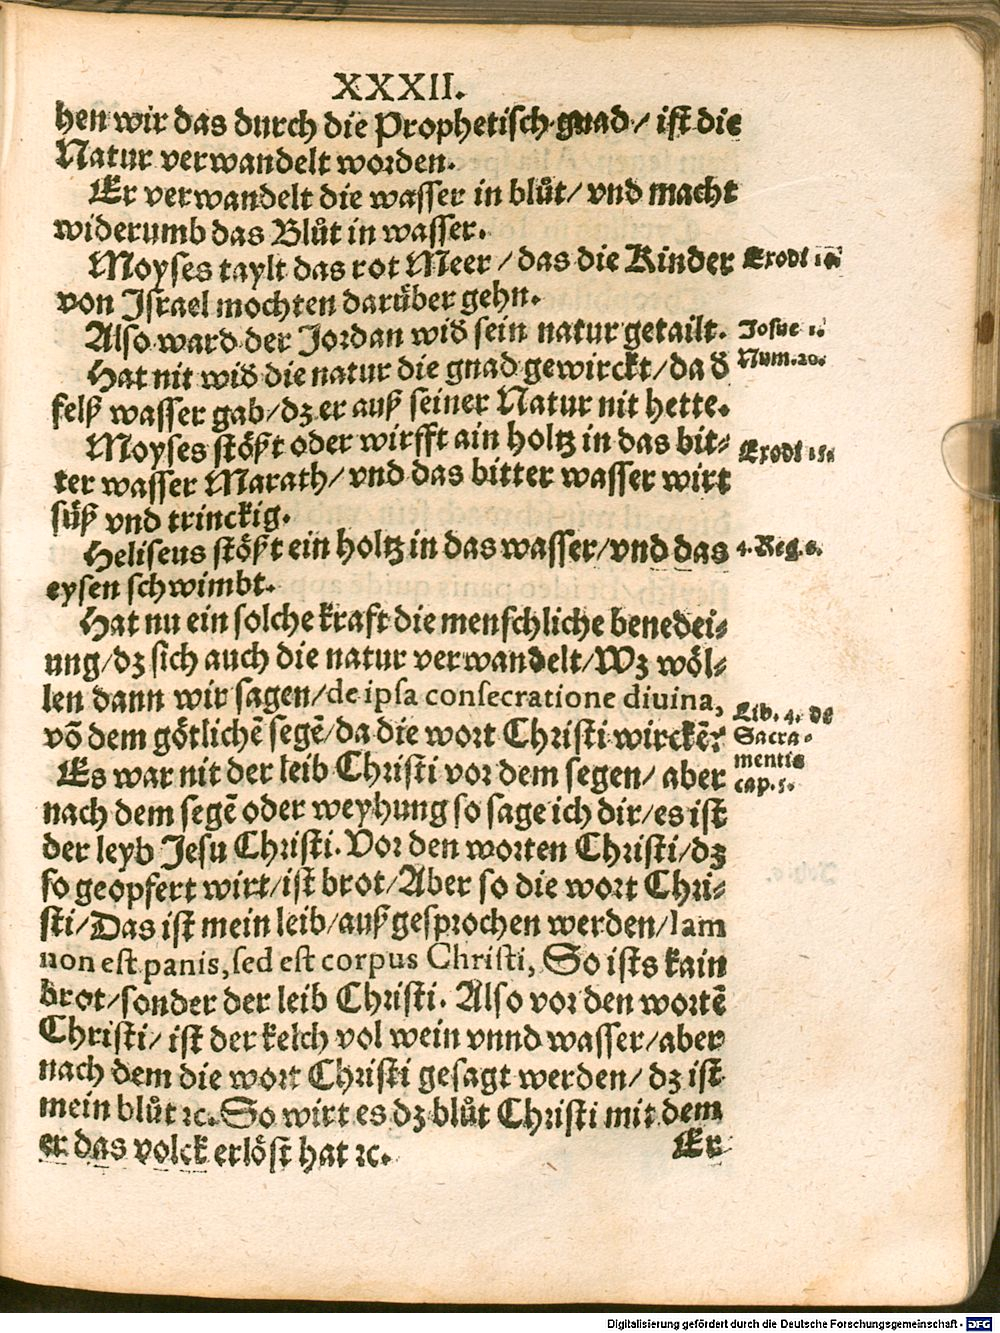 XXXII.
hen wir das durch die Prophetisch gnad/ ist die
Natur verwandelt worden.
Er verwandelt die wasser in blůt/ vnd macht
widerumb das Blůt in wasser.
Moyses taylt das rot Meer/ das die Kinder
Exodi
von Israel mochten darüber gehn.
Also ward der Jordan wid̄ sein natur getailt.
Josue
Hat nit wid̄ die natur die gnad gewirckt/ da d̄
Num. 20.
felß wasser gab/ dz er auß seiner Natur nit hette.
Moyses stößt oder wirfft ain holtz in das bit-
Exodi 15.
ter wasser Marath/ vnd das bitter wasser wirt
süß vnd trinckig.
Heliseus stößt ein holtz in das wasser/ vnd das
4. Reg. 6.
eysen schwimbt.
Hat nu ein solche krafft die menschliche benedei-
ung/ dz sich auch die natur verwandelt/ Wz wöl-
len dann wir sagen/ de ipsa consecratione diuina,
vō dem götlichē segē/ da die wort Christi wirckē?
Lib. 4. de
Sacra-
mentis
cap. 5.
Es war nit der leib Christi vor dem segen/ aber
nach dem segē oder weyhung so sage ich dir/ es ist
der leyb Jesu Christi. Vor den worten Christi/ dz
so geopfert wirt/ ist brot/ Aber so die wort Chri-
sti/ Das ist mein leib/ außgesprochen werden/ Iam
non est panis, sed est corpus Christi, So ists kain
brot/ sonder der leib Christi. Also vor den wortē
Christi/ ist der kelch vol wein vnnd wasser/ aber
nach dem die wort Christi gesagt werden/ dz ist
mein blůt ⁊c. So wirt es dz blůt Christi mit dem
er das volck erlöst hat ⁊c.
Er
Digitalisierung gefördert durch die Deutsche Forschungsgemeinschaft - DFG